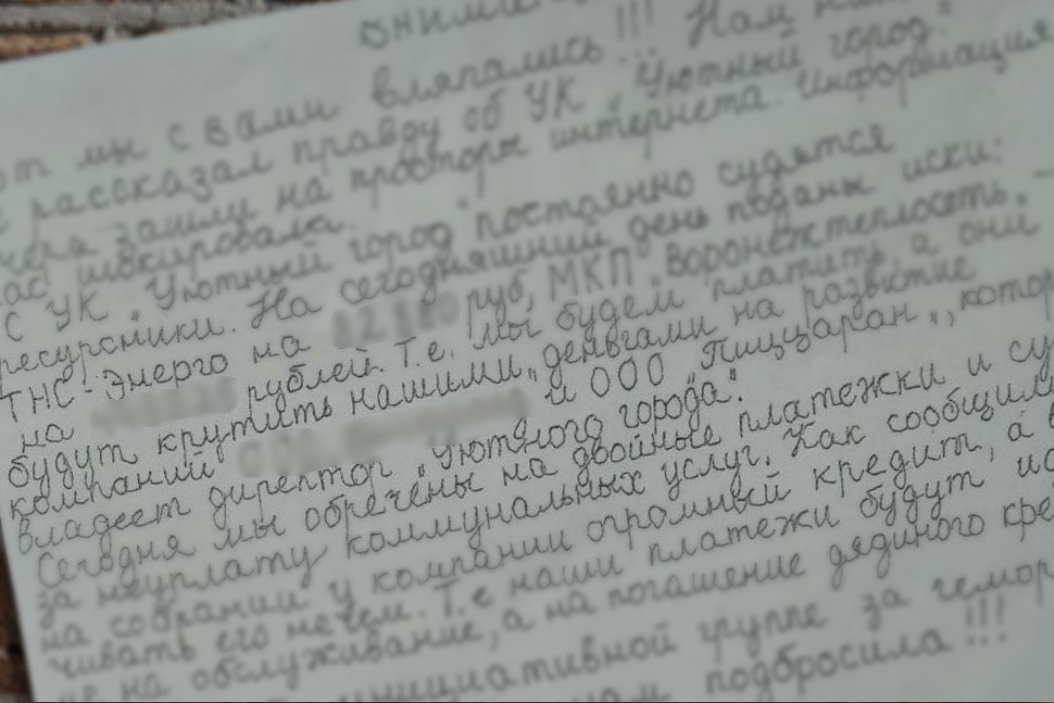 мы с вами вляпались!!! Нам
рассказал правду об УК „Уютный город".
зашли на просторы интернета. Информация
шокировала.
С УК „Уютный город" постоянно судятся
ресурсники. На сегодняшний день поданы иски:
ТНС-Энерго на руб, МКП „Воронежтеплосеть" -
на рублей. Т.е. мы будем платить, а они
будут крутить нашими деньгами на развитие
компаний и ООО „Пиццаран", котор
владеет директор „Уютного города".
Сегодня мы обречены на двойные платежки и су
за неуплату коммунальных услуг. Как сообщили
на собрании у компании огромный кредит, а
чивать его нечем. Т.е наши платежи будут ис
не на обслуживание, а на погашение дядиного кре
инициативной группе за гемор
нам подбросила!!!